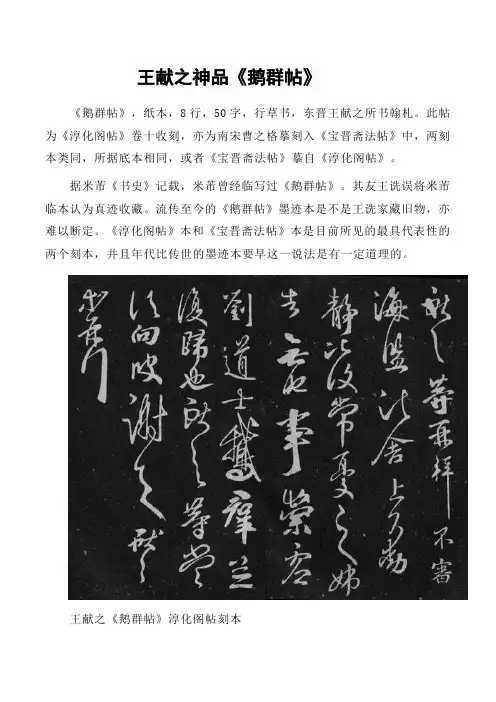 王献之神品《鹅群帖》
《鹅群帖》,纸本,8行,50字,行草书,东晋王献之所书翰札。此帖
为《淳化阁帖》卷十收刻,亦为南宋曹之格摹刻入《宝晋斋法帖》中,两刻
本类同,所据底本相同,或者《宝晋斋法帖》摹自《淳化阁帖》。
据米芾《书史》记载,米芾曾经临写过《鹅群帖》。其友王洗误将米芾
临本认为真迹收藏。流传至今的《鹅群帖》墨迹本是不是王洗家藏旧物,亦
难以断定。《淳化阁帖》本和《宝晋斋法帖》本是目前所见的最具代表性的
两个刻本,并且年代比传世的墨迹本要早这一说法是有一定道理的。
獻之等再拜不審
海鹽諸舍上下動
靜比復常憂之姊
告無他事崇虛
劉道士鵞羣並
復歸也獻之等當
須向彼謝之獻之
王献之《鹅群帖》淳化阁帖刻本